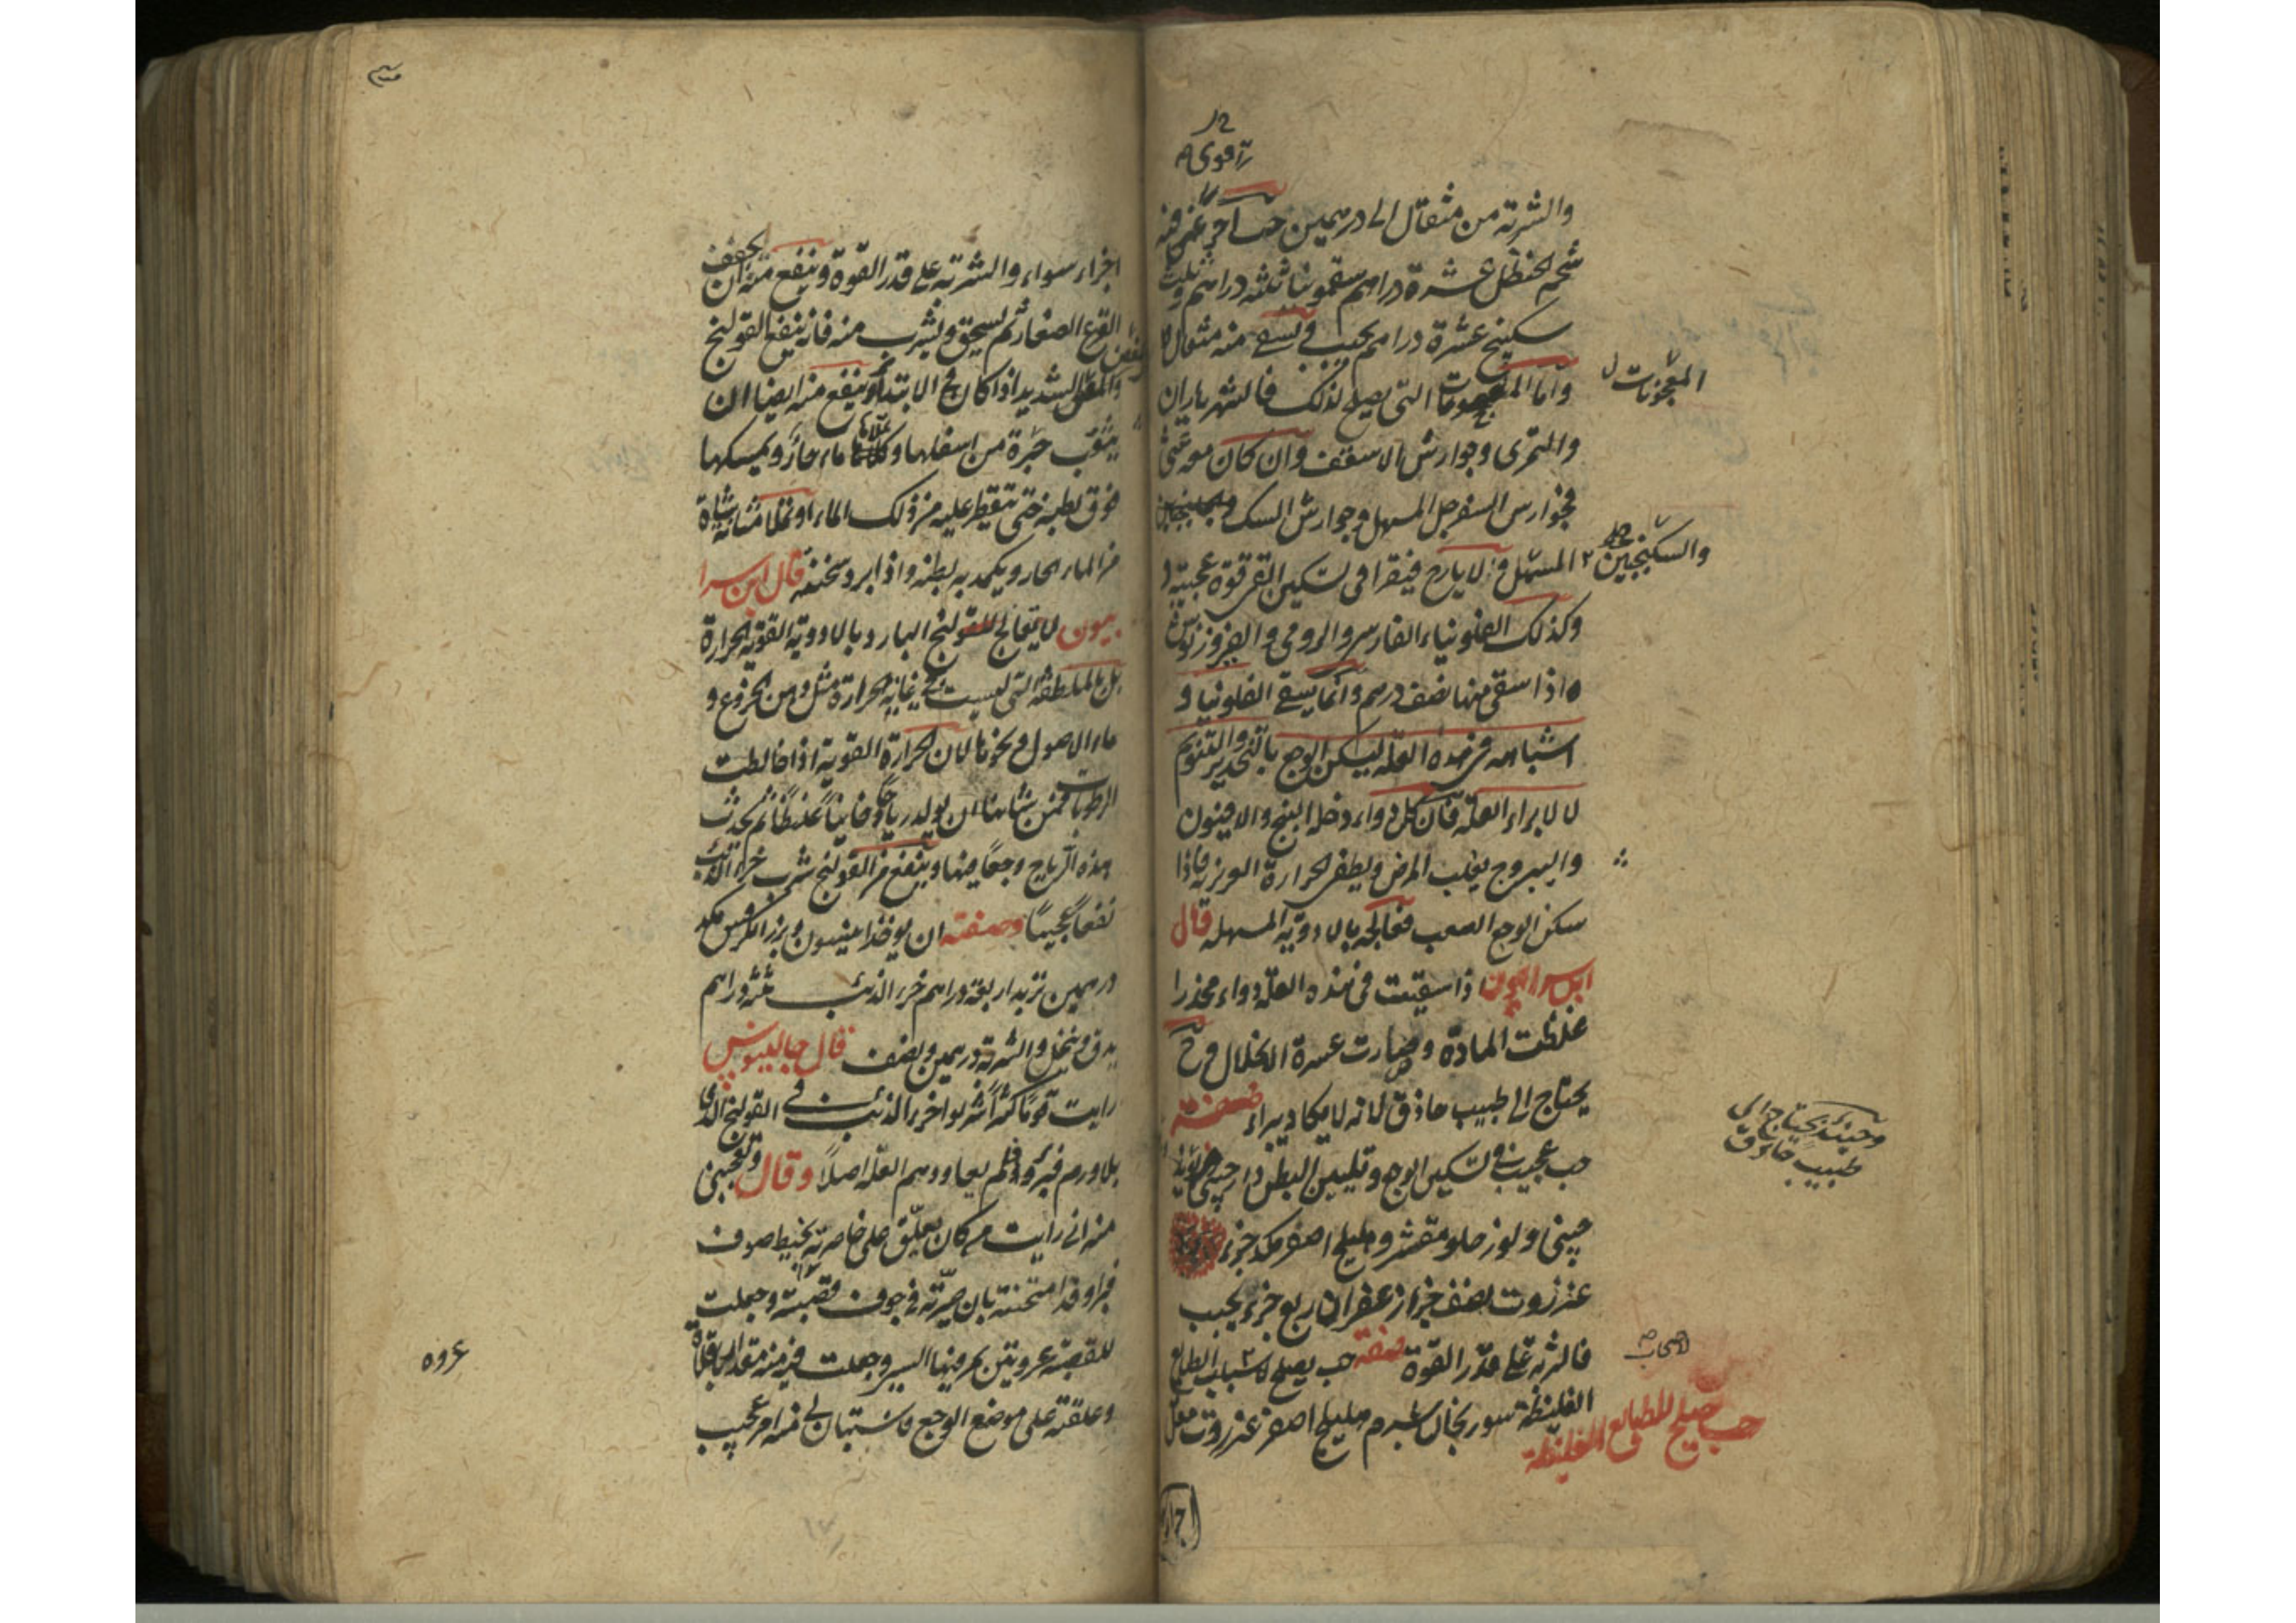 قوى
والشربة من مثقال الى درهمين حب آخر
شحم الحنظل عشرة دراهم سقمونيا ثلثه دراهم وثلث
سكبينج عشرة دراهم يحبب يسقى منه مثقال
واما المعجونات التى يصلح لذلك فالشهرياران
والتمرى وجوارش الاسقف وان كان معه غثى
فجوارس السفرجل المسهل وجوارش السك
المسهل والايارج فيقرا فى تسكين القى قوة عجيبة
وكذلك الفلونياء الفارسى والرومى
واذا سقى منها نصف درهم وانما يسقى الفلونيا و
اشباهه فى هذه العله ليسكن الوجع بالتخدير والتنويم
لا لابراء العلة فان كل دواء دخله البنج والافيون
واليبروج يغلب المرض ويطفى الحرارة الغريزية فاذا
سكن الوجع الصعب فعالجه بالادوية المسهله قال
ابن سرابيون اذا سقيت فى هذه العلة دواء مخدرا
غلظت المادة وصارت عسرة الانحلال وح
يحتاج الى طبيب حاذق لانه لا يكاد يبراء صفته
حب عجيب فى تسكين الوجع وتليين البطن دار چينى
چينى ولوز حلو مقشر وهليلج اصفر مكد جزء
عنزروت نصف جزء زعفران ربع جزء يحبب
فالشربة على قدر القوة صفة حب يصلح لاصحاب الطبائع
الغليظة سورنجان شبرم هليلج اصفر عنزروت مقل
المعجونات
والسكنجبين
وحينئذ يحتاج الى
طبيب حاذق
اصحاب
حب يصلح للطبائع الغليظة
اجزاء
اجزاء سواء والشربة على قدر القوة وينفع منه ان يجفف
القرع الصغار ثم يسحق ويشرب منه فانه ينفع القولنج
والمغص الشديد اذا كان فى الابتداء وينفع منه ايضا ان
يثقب جرة من اسفلها وتملأها ماء حار ويمسكها
فوق بطنه حتى تقطر عليه من ذلك الماء او تملا مثانة شاة
من الماء الحار ويكمد به بطنه واذا برد سخنه قال ابن سرا
بيون لا تعالج القولنج البارد بالادوية القوية الحرارة
بل بالملطفة التى ليست فى غاية الحرارة مثل دهن الخروع و
ماء الاصول ونحوها لان الحرارة القوية اذا خالطت
الرطوبات فمن شانها ان يولد رياحا غليظا ثم يحدث
هذه الرياح وجعا فيها وينفع من القولنج شرب خرء الذئب
نفعا عجيبا وصفته ان يوخذ انيسون وبزر الكرفس مكد
درهمين تربد اربعة دراهم خرء الذئب ثلثه دراهم
يدق وينخل والشربة درهمين ونصف قال جالينوس
رايت قوما كثيرا شربوا خرء الذئب فى القولنج الذى
بلا ورم فبرؤا ولم يعاودهم العله اصلا وقال وتعجبنى
منه انى رايت من كان يعلق على خاصرته بخيط صوف
فبرا وقد امتحنته بان صيرته فى جوف قصبة وجعلت
للقصبة عروتين يمر فيها السير وجعلت فيه منه مقدار باقلاة
وعلقته على موضع الوجع فاستبان لى منه امر عجيب
عروه